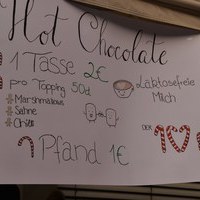 Hot Chocolate
1 Tasse 2€
pro Topping 50ct
Marshmallows
Sahne
Laktosefreie
Milch
Pfand 1€